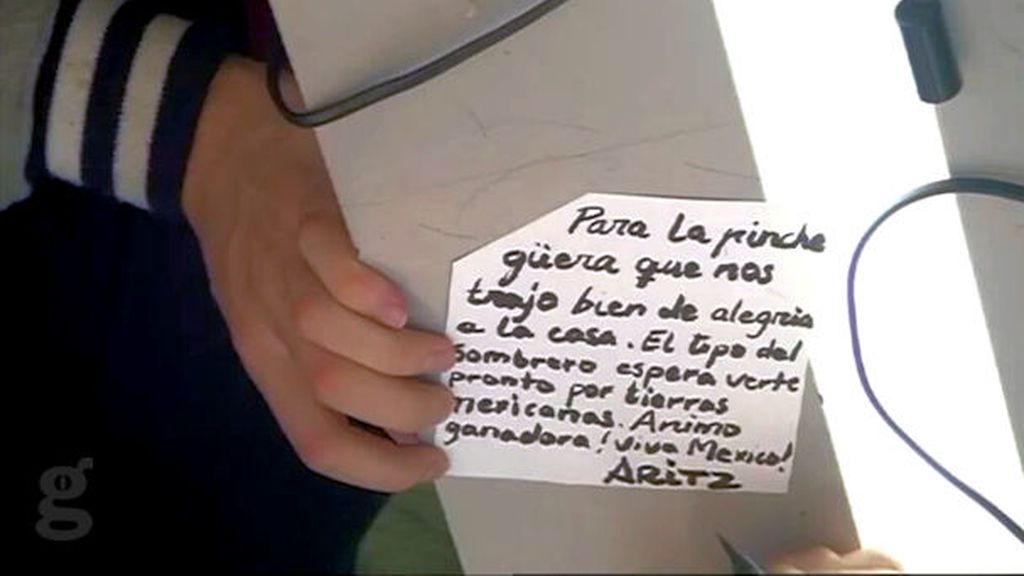 Para la pinche
güera que nos
trajo bien de alegria
a la casa. El tipo del
sombrero espera verte
pronto por tierras
mexicanas. Animo
ganadora! Viva Mexico!
ARITZ
g